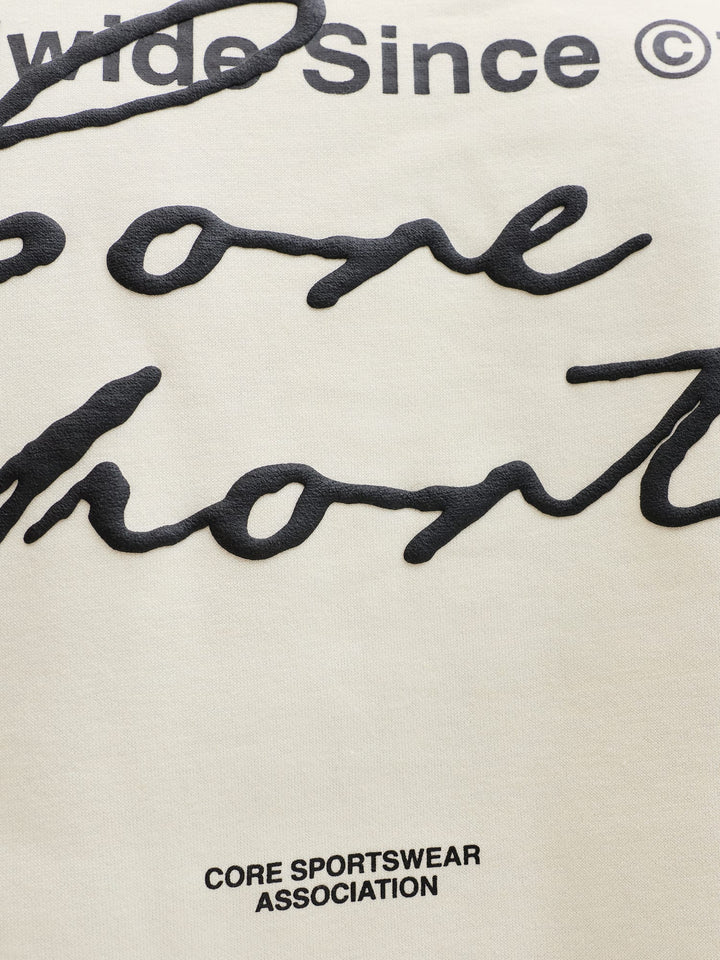 wide Since ©
Core
Sport
CORE SPORTSWEAR
ASSOCIATION